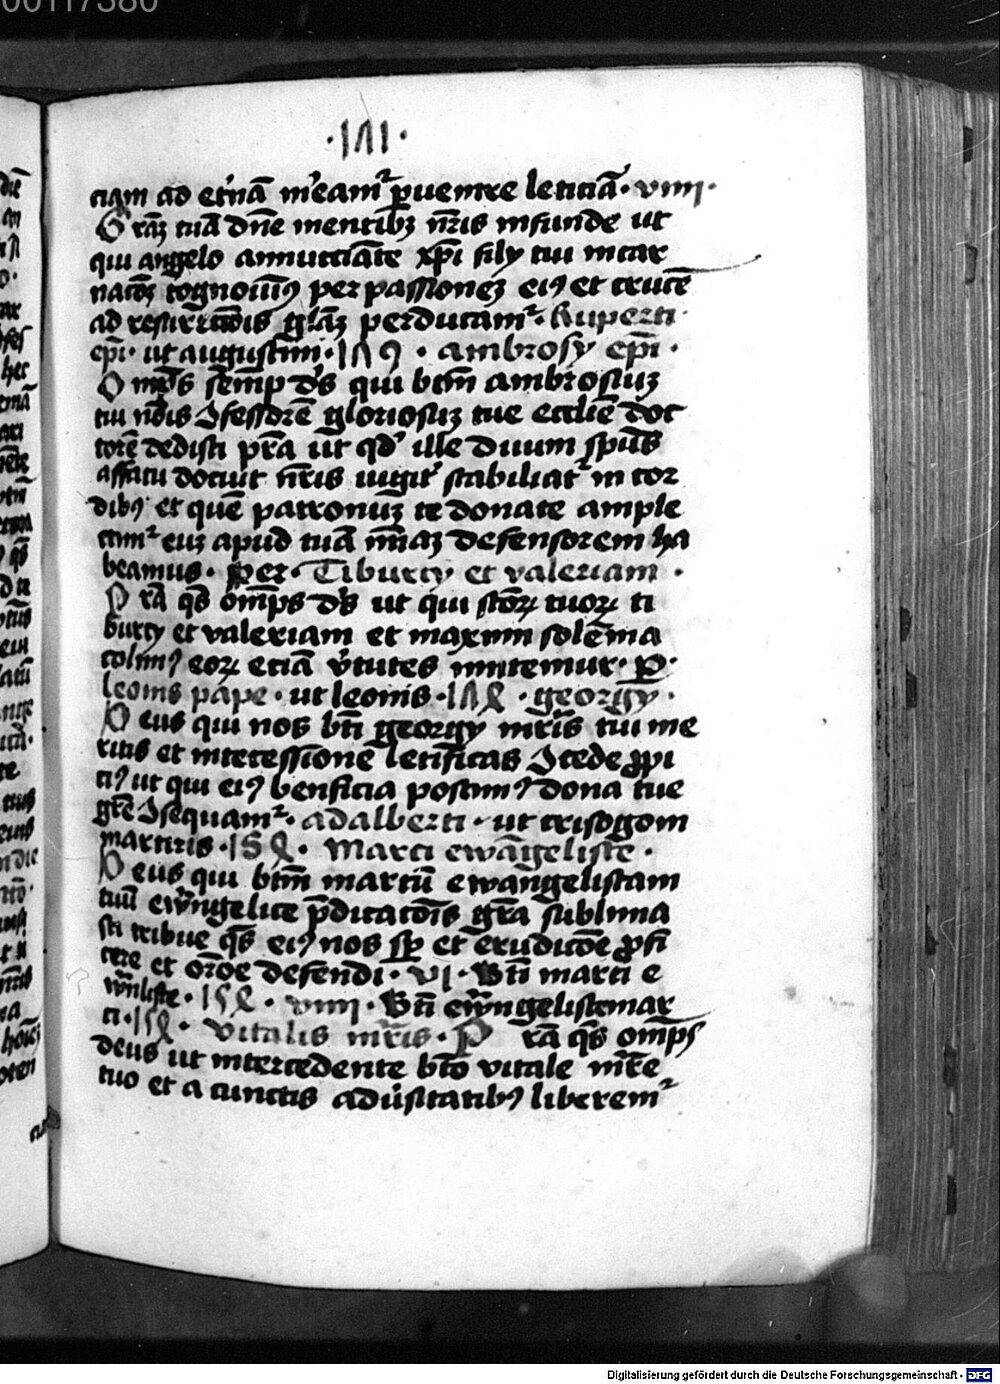 00117380
·1Λ1·
ciam ad et'nā m'eam² ꝑuenire leticiā· viiij·
Grāȝ tuā dn̄e mentibȝ nr̄is infunde ut
qui angelo annucciāte xp̄i filÿ tui incar
nacōȝ cognouimꝰ per passioneȝ eiꝰ et crucē
ad resurrcōis gl̄āȝ perducam²· Ruperti·
ep̄i· ut augustini·1Λ9· ambrosÿ ep̄i·
Om̄ps semp̄ d's qui btm̄ ambrosiuȝ
tui nōis ꝯfessorē gloriosuȝ tue eccl'ie doc
torē dedisti pr̄a ut qd' ille diuini sp̄us
affatu docuit nr̄is iugit' stabiliat² in cor
dibꝰ et quē patronuȝ te donāte ample
ctim² eiȝ apud tuā mīaȝ defensorem ha
beamus· Per· Tiburcÿ et valeriani·
Pr̄a q̄s om̄ps d's ut qui sc̄oꝝ tuoꝝ ti
burcÿ et valeriani et maximi solēnia
colimꝰ eoꝝ eciā v'tutes imitemur· P·
leonis pape· ut leonis·1Λ8· georgÿ·
Deus qui nos bt̄i georgÿ mr̄is tui me
ritis et intercessione letificas ꝯcede ꝓpi
ciꝰ ut qui eiꝰ benficia poscimꝰ dona tue
gr̄e ꝯsequam²· adalberti· ut crisogoni
martiris·158· Marci ewāgeliste·
Deus qui btm̄ marcū ewangelistam
tuū ew̄ngelice p̄dicacōis gr̄a sublima
sti tribue q̄s eiꝰ nos sp̄ et erudicōe ꝓfi
cere et or̄oe defendi· vi· Bt̄i marci e
w̄nliste·158· viiij· Bt̄i ew̄ngeliste mar
ci·158· Vitalis mr̄is· P rā q̄s om̄ps
deus ut intercedente bt̄o vitale mr̄e
tuo et a cunctis adu'sitatibꝰ liberem²
Digitalisierung gefördert durch die Deutsche Forschungsgemeinschaft · DFG